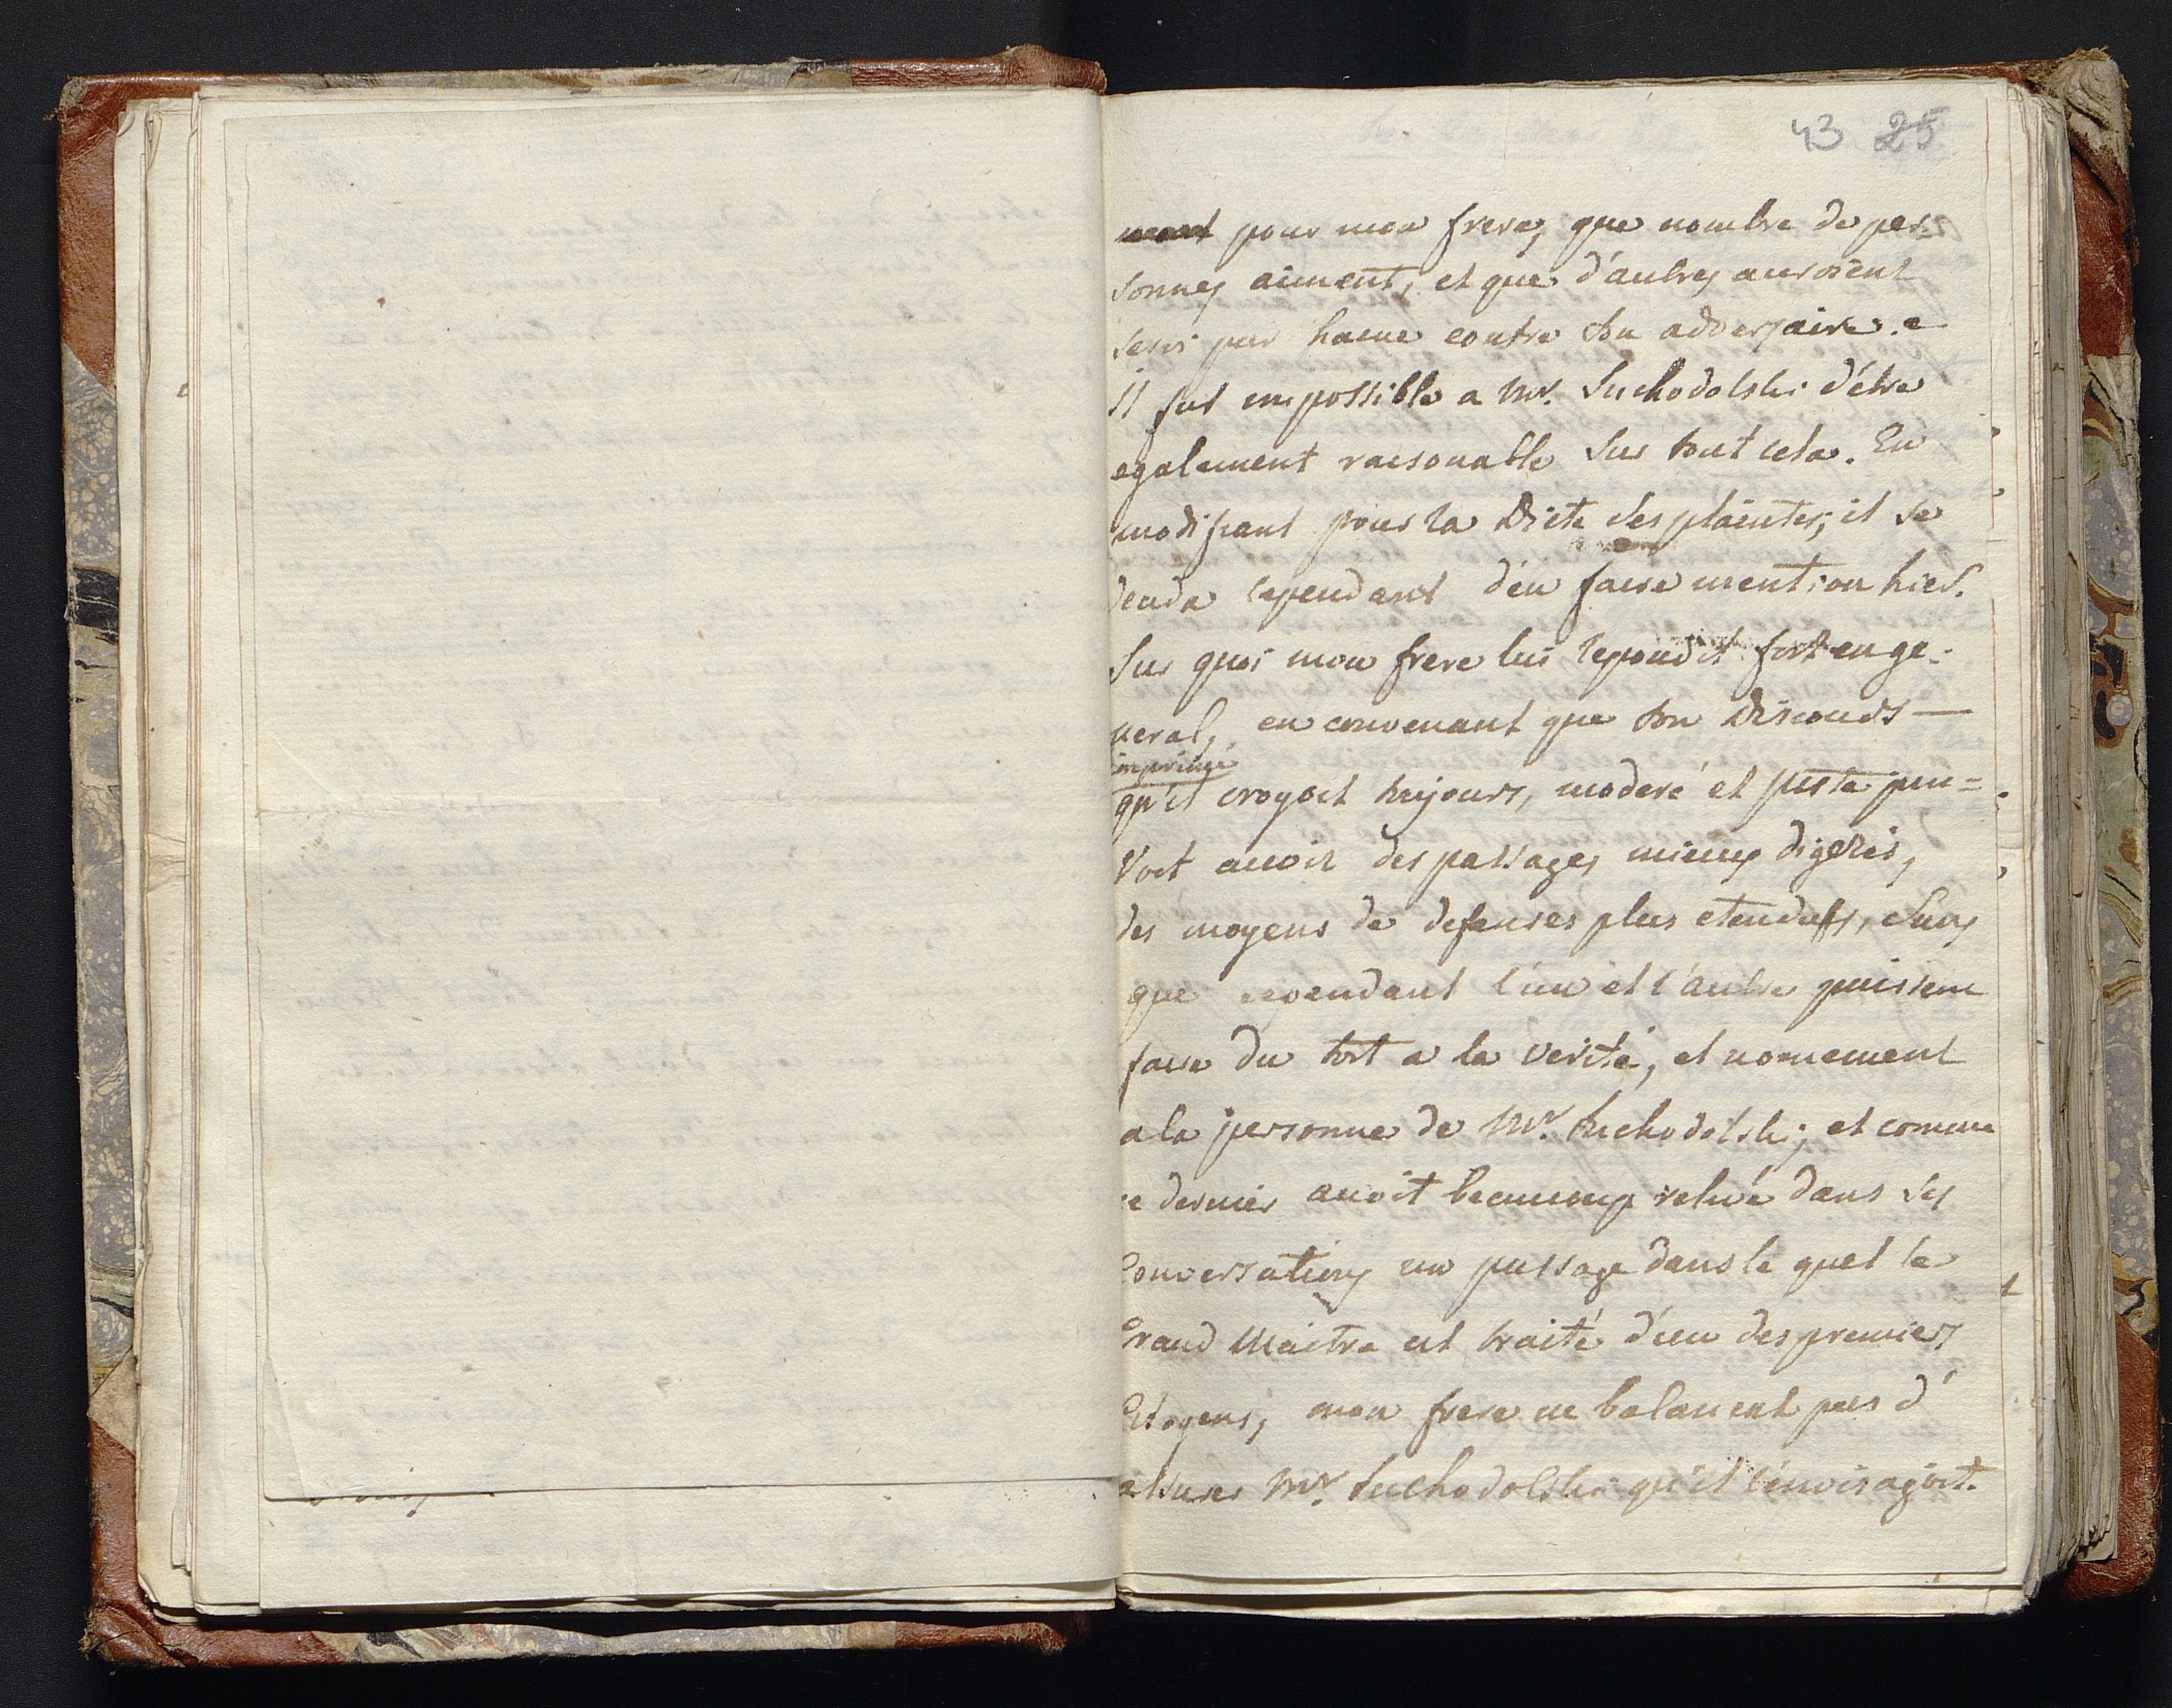 43 25
pour mon frere, que nombre de per-
sonnes aiment, et que d'autres auroient
servi par haine contre son adversaire.
Il fut impossible a Mr. Suchodolski d'être
egalement raisonable sur tout cela. En
modifiant pour la Diete ses plaintes, il se
cependant d'en faire mention hier.
Sur quoi mon frere lui repondit fort en ge-
neral, en convenant que son Discours
imprimé
qu'il croyoit toujours, moderé et juste pou=
voit avoir des passages mieux digerés,
des moyens de defenses plus etendues, sans
que cependant l'un et l'autre puissent
faire du tort a la verité, et nomement
a la personne de Mr. Suchodolski; et comme
ce dernier avoit beaucoup relevé dans ses
Conversations un passage dans le quel le
Grand Maitre est traité d'un des premiers
Citoyens, mon frere ne balancat pas d'
assurer Mr. Suchodolski qu'il l'envisagoit